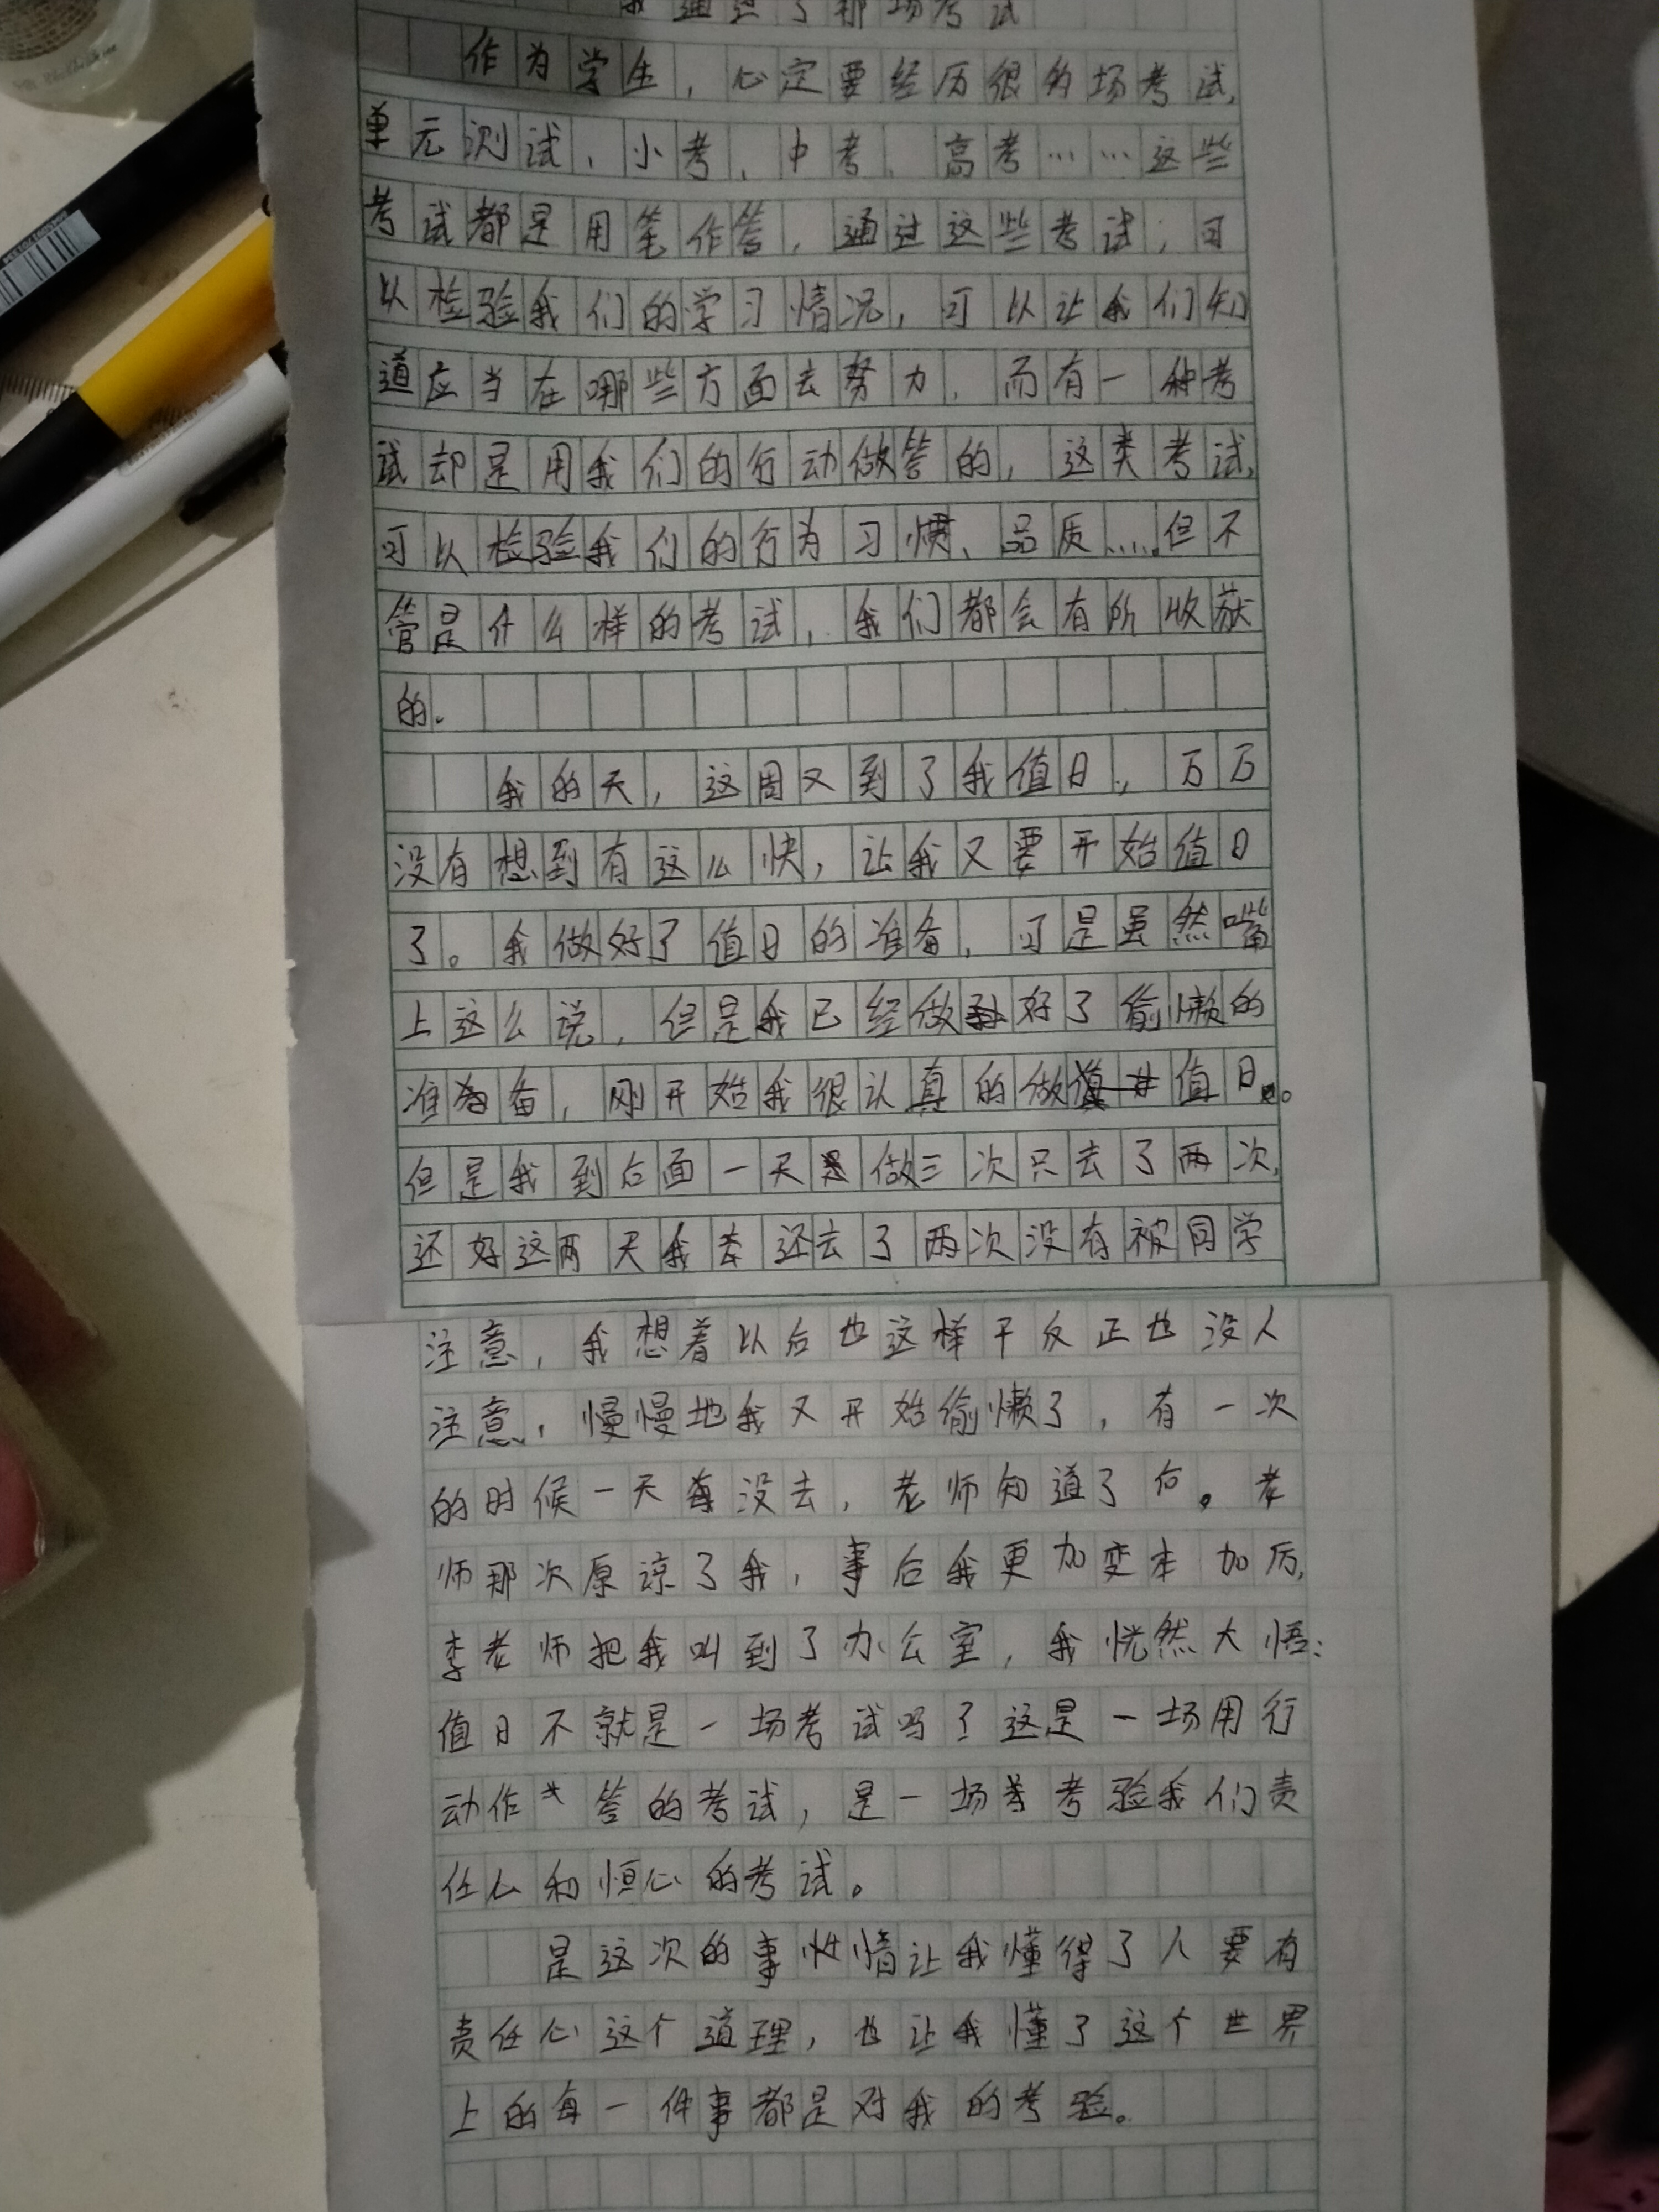 我通过了那场考试
作为学生，心定要经历很多场考试，
单元测试、小考、中考、高考……这些
考试都是用笔作答，通过这些考试，可
以检验我们的学习情况，可以让我们知
道应当在哪些方面去努力，而有一种考
试却是用我们的行动做答的，这类考试，
可以检验我们的行为习惯、品质……但不
管是什么样的考试，我们都会有所收获
的。
我的天，这周又到了我值日，万万
没有想到有这么快，让我又要开始值日
了。我做好了值日的准备，可是虽然嘴
上这么说，但是我已经做好了偷懒的
准备，刚开始我很认真的做值日。
但是我到后面一天做三次只去了两次，
还好这两天我还去了两次没有被同学
注意，我想着以后也这样干反正也没人
注意，慢慢地我又开始偷懒了，有一次
的时候一天没去，老师知道了后。老
师那次原谅了我，事后我更加变本加厉，
李老师把我叫到了办公室，我恍然大悟：
值日不就是一场考试吗？这是一场用行
动作答的考试，是一场考验我们责
任心和恒心的考试。
是这次的事情让我懂得了人要有
责任心这个道理，也让我懂了这个世界
上的每一件事都是对我的考验。